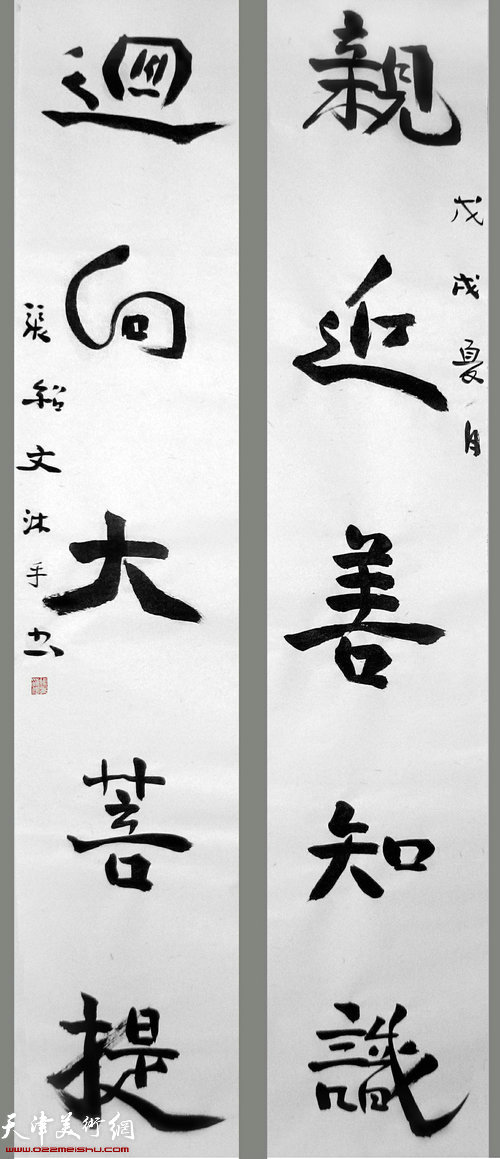 親近善知識
戊戌夏月
迴向大菩提
張紹文沐手書
天津美術網
www.022meishu.com